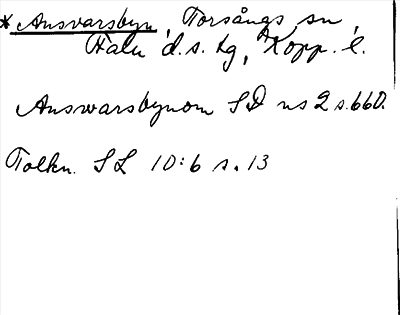 *Ansvarsbyn, Torsångs sn,
Falu d.s. lg, Kopp. l.
Answarsbynom SD ns 2 s. 660.
Tolkn. SL 10:6 s. 13